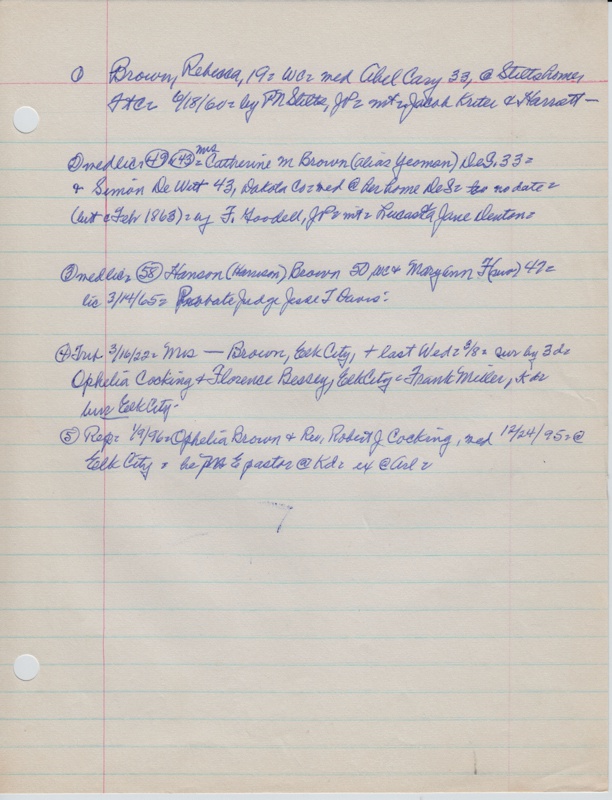 ① Brown, Rebecca, 19= WC= med Abel Cary 33, @ Stilts homes
6/18/60= by PM Stilts, JP= mt= Jacob Kreter & Harriett —
② med lics 19 & 43= mrs Catherine M Brown (alias Yeoman) DeS, 33=
+ Simon DeWitt 43, Dakota Co= med @ her home DeS= no date=
(but c Feb 1863)= by F. Goodell, JP= mt= Lucas & Jane Denton=
③ med lic= 58 Hanson (Harrison) Brown 50 WC & Maryann 47=
lic 3/14/65= Probate Judge Jesse T Davis.
④ Trib 3/16/22= Mrs — Brown, Elk City, + last Wed= 3/8= sur by 3 d=
Ophelia Cocking & Florence Bessey, Elk City= Frank Miller,
bur Elk City.
⑤ Rep= 1/9/96= Ophelia Brown & Rev. Robert J Cocking, med 12/24/95= @
Elk City = he ME pastor @ Kd= ex @ Arl=